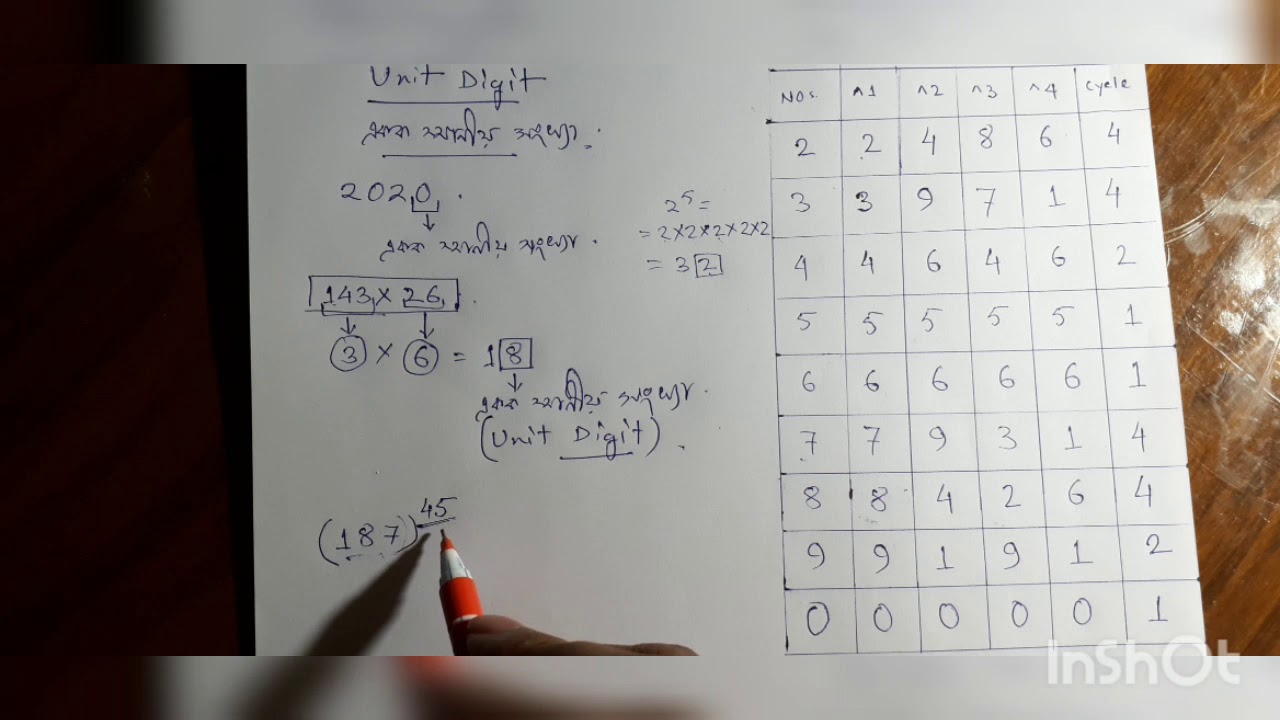 Unit Digit
একক স্থানীয় সংখ্যা.
2020.
একক স্থানীয় সংখ্যা.
143 × 26.
3 × 6 = 18
একক স্থানীয় সংখ্যা.
(Unit Digit).
(187)^45
2^5 =
= 2×2×2×2×2
= 32
NOs. ^1 ^2 ^3 ^4 Cycle
2 2 4 8 6 4
3 3 9 7 1 4
4 4 6 4 6 2
5 5 5 5 5 1
6 6 6 6 6 1
7 7 9 3 1 4
8 8 4 2 6 4
9 9 1 9 1 2
0 0 0 0 0 1
InShOt